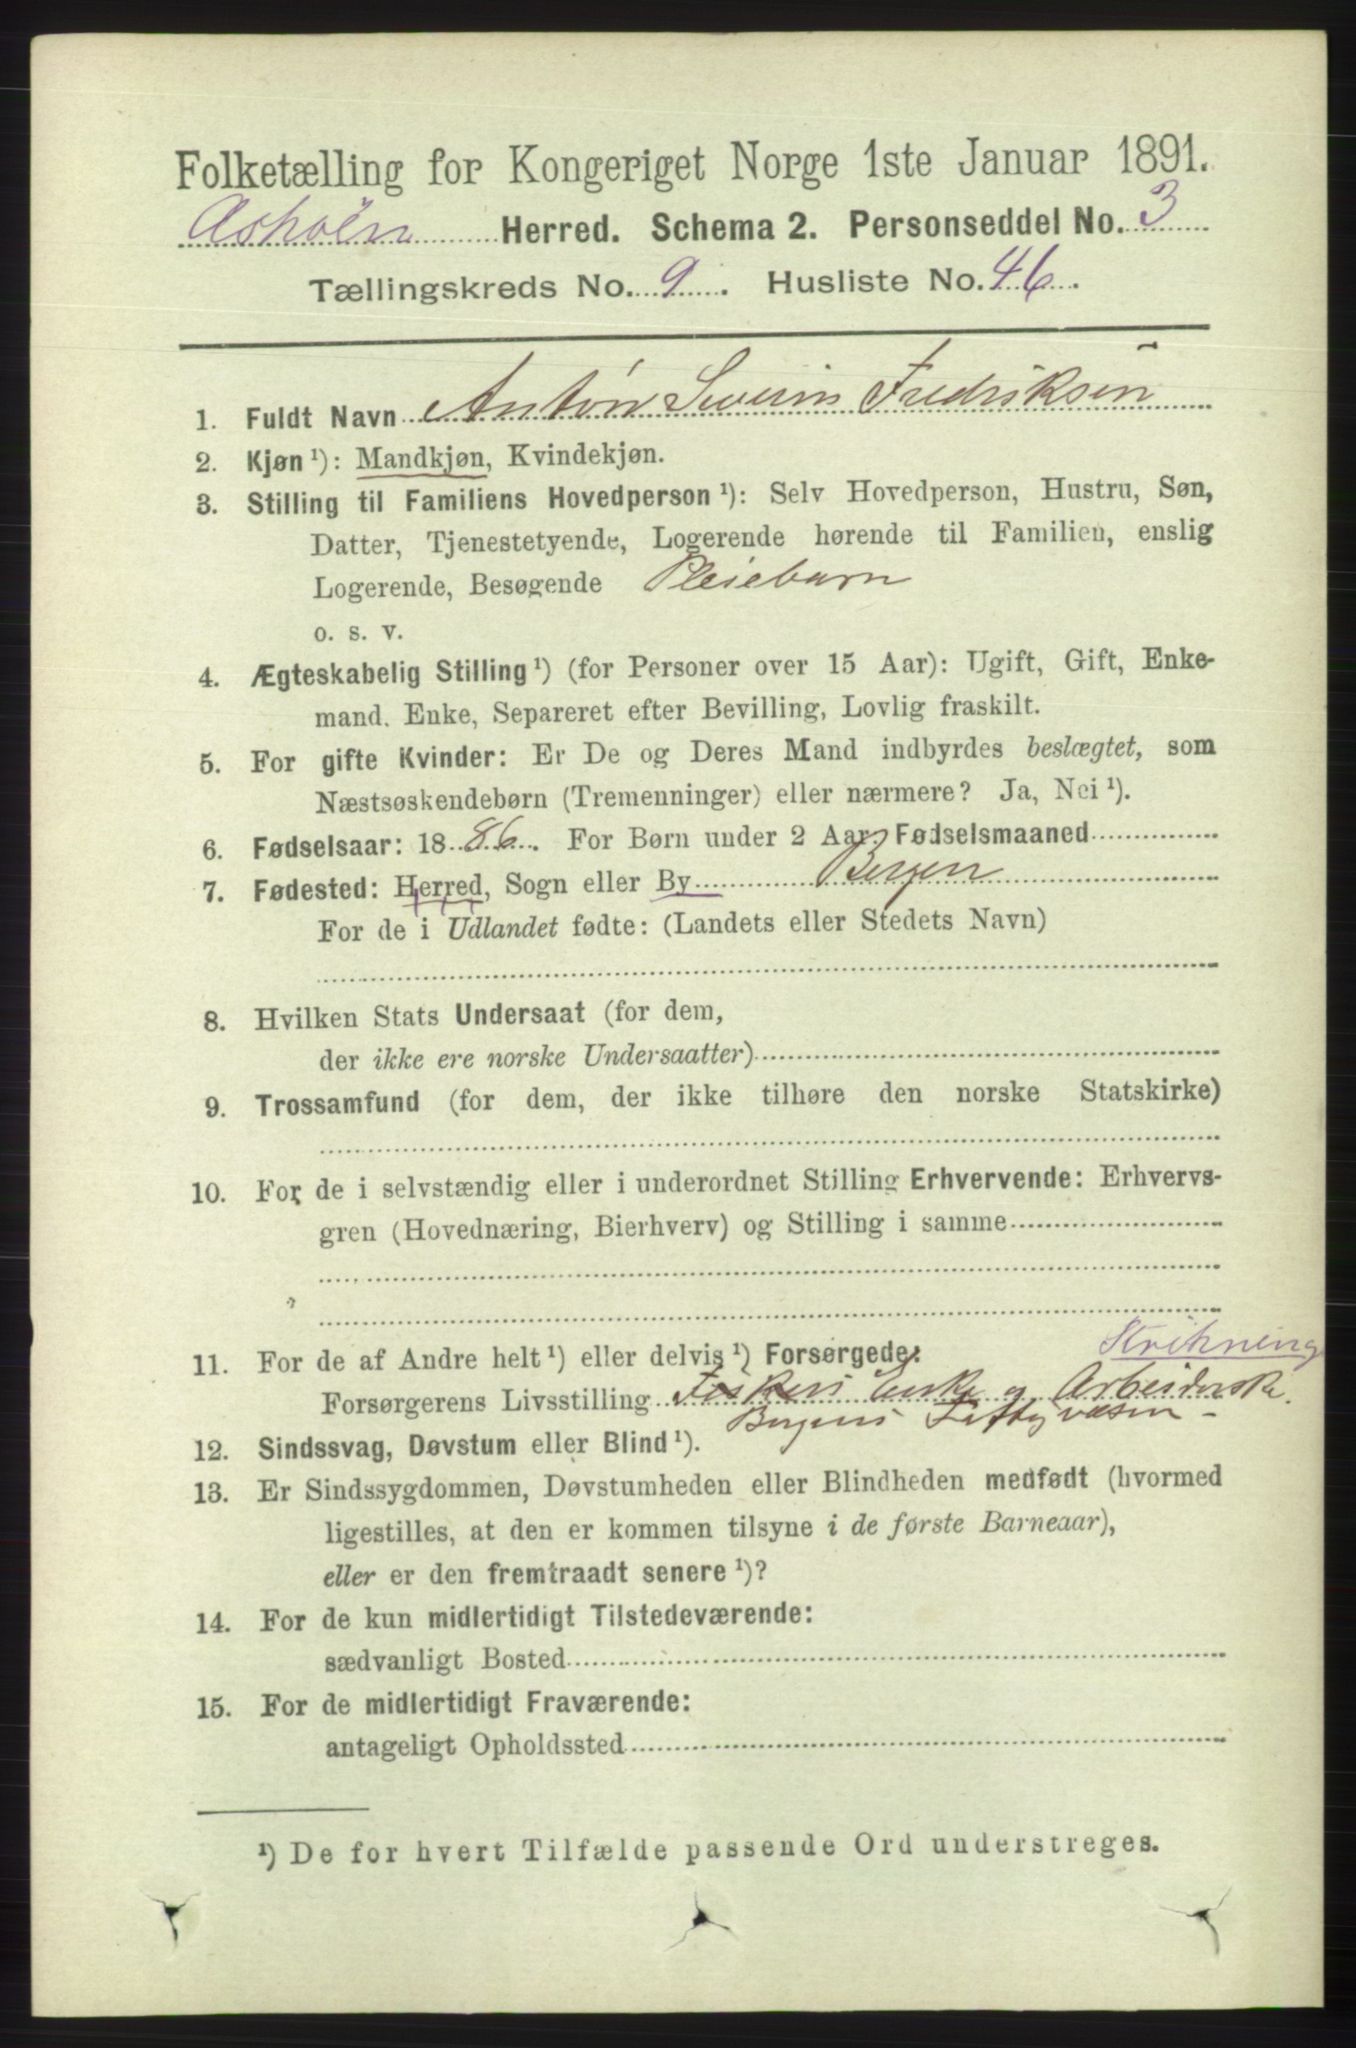 Folketælling for Kongeriget Norge 1ste Januar 1891.
Askøen Herred. Schema 2. Personseddel No. 3
Tællingskreds No. 9. Husliste No. 46.
1. Fuldt Navn Anton Severin Fredriksen
2. Kjøn ¹): Mandkjøn, Kvindekjøn.
3. Stilling til Familiens Hovedperson ¹): Selv Hovedperson, Hustru, Søn,
Datter, Tjenestetyende, Logerende hørende til Familien, enslig
Logerende, Besøgende Pleiebarn
o. s. v.
4. Ægteskabelig Stilling ¹) (for Personer over 15 Aar): Ugift, Gift, Enke-
mand. Enke, Separeret efter Bevilling, Lovlig fraskilt.
5. For gifte Kvinder: Er De og Deres Mand indbyrdes beslægtet, som
Næstsøskendebørn (Tremenninger) eller nærmere? Ja, Nei ¹).
6. Fødselsaar: 1886. For Børn under 2 Aar: Fødselsmaaned
7. Fødested: Herred, Sogn eller By Bergen
For de i Udlandet fødte: (Landets eller Stedets Navn)
8. Hvilken Stats Undersaat (for dem,
der ikke ere norske Undersaatter)
9. Trossamfund (for dem, der ikke tilhøre den norske Statskirke)
10. For de i selvstændig eller i underordnet Stilling Erhvervende: Erhvervs-
gren (Hovednæring, Bierhverv) og Stilling i samme
11. For de af Andre helt ¹) eller delvis ¹) Forsørgede:
Strikning
Forsørgerens Livsstilling Fiskers Enke og Arbeiderske.
Bergens
12. Sindssvag, Døvstum eller Blind ¹).
13. Er Sindssygdommen, Døvstumheden eller Blindheden medfødt (hvormed
ligestilles, at den er kommen tilsyne i de første Barneaar),
eller er den fremtraadt senere ¹)?
14. For de kun midlertidigt Tilstedeværende:
sædvanligt Bosted
15. For de midlertidigt Fraværende:
antageligt Opholdssted
¹) De for hvert Tilfælde passende Ord understreges.